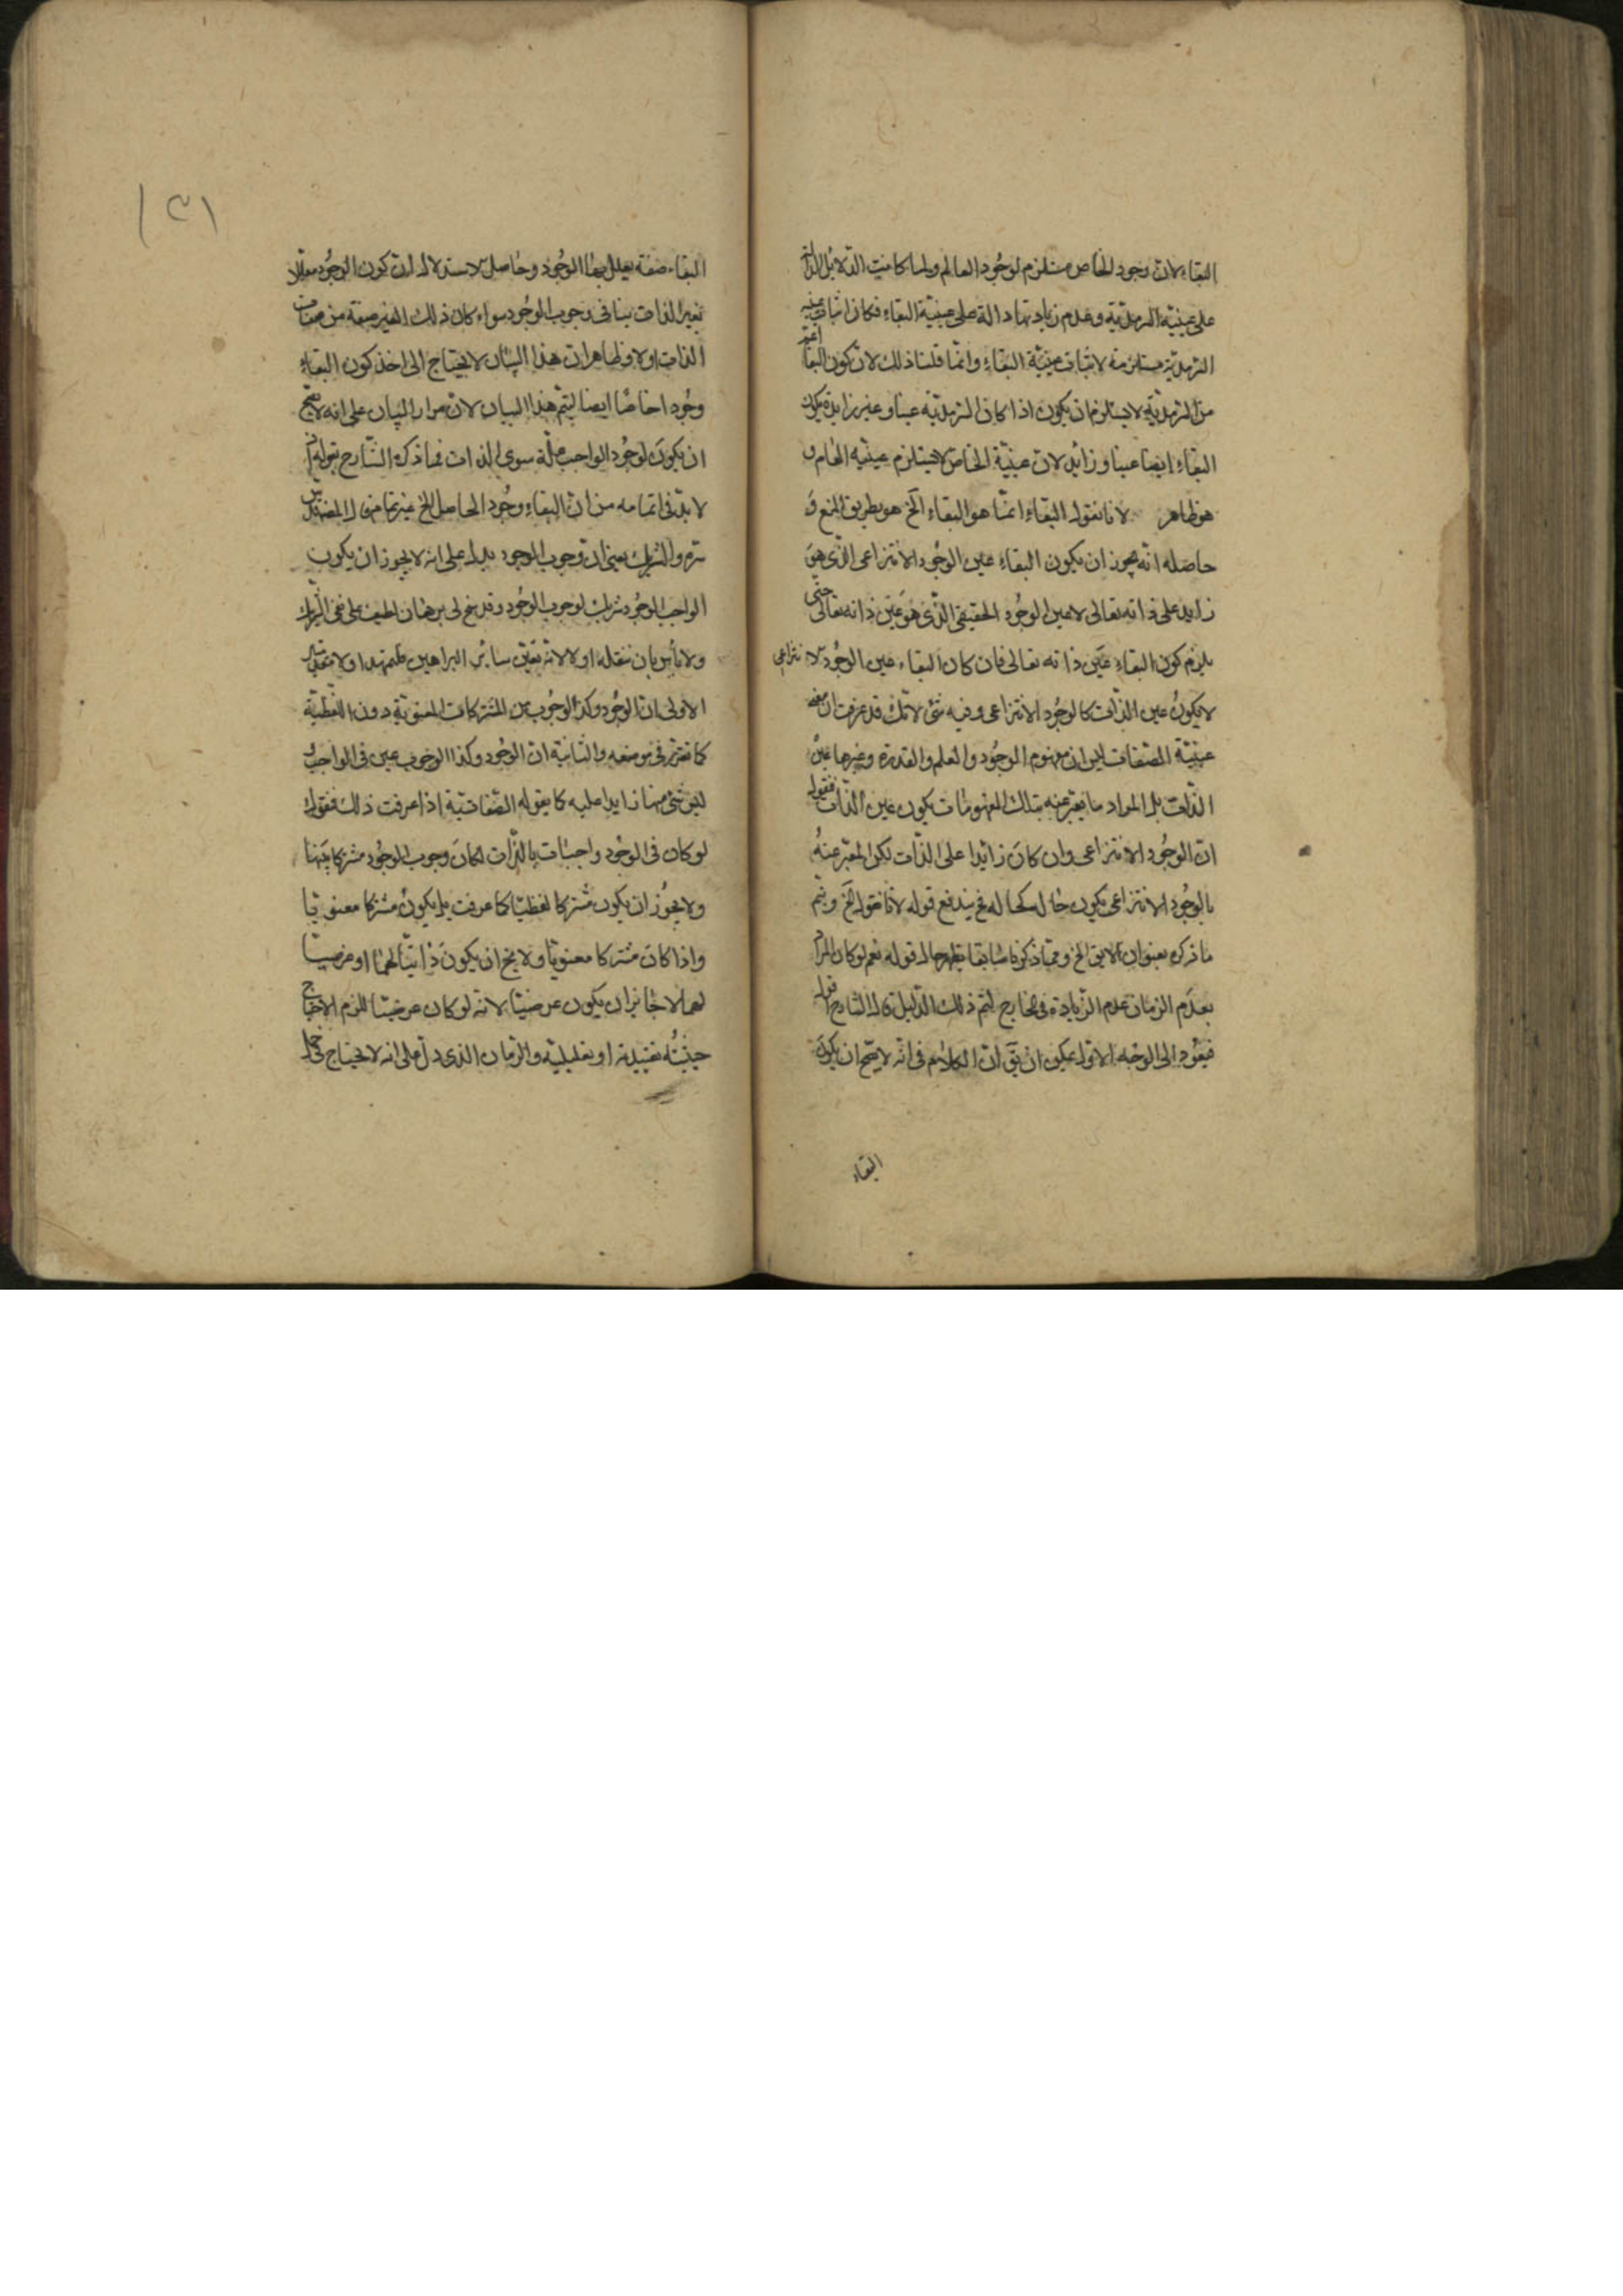 البقاء لان وجود الخاص مستلزم لوجود العالم ولما كانت الدلائل الدالة
على عينية السرمدية وعدم زيادتها دالة على عينية البقاء فكان اثبات عينية
السرمدية مستلزمة لاثبات عينية البقاء وانما قلنا ذلك لان كون البقاء اعم
من السرمدية لا يستلزم ان يكون اذا كان السرمدية عينا وغير زايدة يكون
البقاء ايضا عينا وزائد لان عينية الخاص لا يستلزم عينية العام و
هو ظاهر لا نا نقول البقاء انما هو البقاء الخ هو بطريق المنع و
حاصله انه يجوز ان يكون البقاء عين الوجود الانتزاعي الذي هو
زايد على ذاته تعالى لا عين الوجود الحقيقي الذي هو عين ذاته تعالى حتى
يلزم كون البقاء عين ذاته تعالى فان كان البقاء عين الوجود الانتزاعي
لا يكون عين الذات كالوجود الانتزاعي وفيه شئ لانك قد عرفت ان معنى
عينية الصفات ليس ان مفهوم الوجود والعلم والقدرة وغيرها عين
الذات بل المراد ما يعبر عنه بتلك المفهومات يكون عين الذات فنقول
ان الوجود الانتزاعي وان كان زائدا على الذات لكن المعبر عنه
بالوجود الانتزاعي يكون حاله كحاله فح يندفع قوله لانا نقول الخ ويتم
ما ذكره بعنوان لا يق الخ ومما ذكرنا سابقا يظهر حال قوله نعم لو كان المراد
بعدم الزمان عدم الزيادة في الخارج ليتم ذلك الدليل قال الشارح قوله
فيعود الى الوجه الاول يمكن ان يق ان الكلام في انه لا يصح ان يكون
البقاء
١٣١
البقاء صفة يعلل بها الوجود وحاصل الاستدلال ان كون الوجود معللا
بغير الذات ينافي وجوب الوجود سواء كان ذلك الغير صفة من صفات
الذات او لا وظاهر ان هذا البيان لا يحتاج الى اخذ كون البقاء
وجودا خاصا ايضا ليتم هذا البيان لان مدار البيان على انه لا يصح
ان يكون لوجود الواجب علة سوى الذات فما ذكره الشارح بقوله
لا بد في اتمامه من ان البقاء وجود الحاصل الخ غير تمام
والشريك يعني ان وجوب الوجود يدل على انه لا يجوز ان يكون
الواجب الوجود شريك لوجوب الوجود وقد سنح لي برهان لطيف على نفي الشريك
ولا بأس بان ننقله اولا لانه يغني سائر البراهين فلنمهد اولا مقدمتين
الاولى ان الوجود وكذا الوجوب من المشتركات المعنوية دون اللفظية
كما تقرر في موضعه والثانية ان الوجود وكذا الوجوب عين في الواجب و
ليس شئ منها زايدا عليه كما يقوله الصفاتية اذا عرفت ذلك فنقول
لو كان في الوجود واجبات بالذات لكان وجوب الوجود مشتركا بينها
ولا يجوز ان يكون مشتركا لفظيا كما عرفت بل يكون مشتركا معنويا
واذا كان مشتركا معنويا ولا يخ ان يكون ذاتيا لهما او عرضيا
لهما لا جائز ان يكون عرضيا لانه لو كان عرضيا للزم الاحتياج
حيثية تقييدية او تعليلية والزمان الذي دل على انه لا يحتاج في